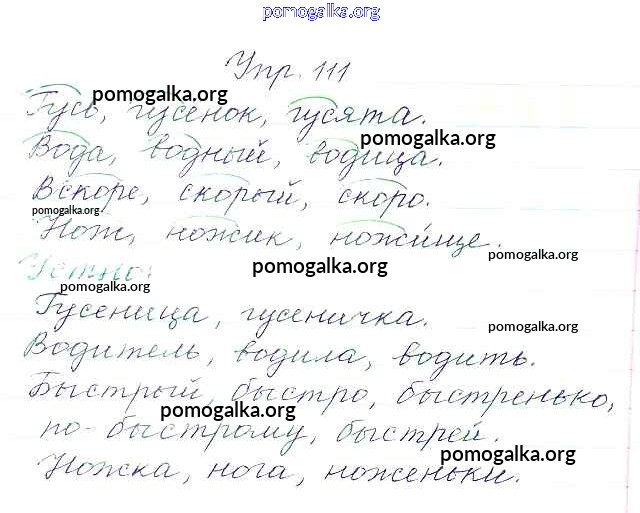 pomogalka.org
Упр. 111
pomogalka.org
Гусь, гусёнок, гусята.
pomogalka.org
Вода, водный, водица.
Вскоре, скорый, скоро.
pomogalka.org
Нож, ножик, ножище.
pomogalka.org
Устно:
pomogalka.org
pomogalka.org
Гусеница, гусеничка.
pomogalka.org
Водитель, водила, водить.
Быстрый, быстро, быстренько,
pomogalka.org
по-быстрому, быстрей.
pomogalka.org
Ножка, нога, ноженьки.